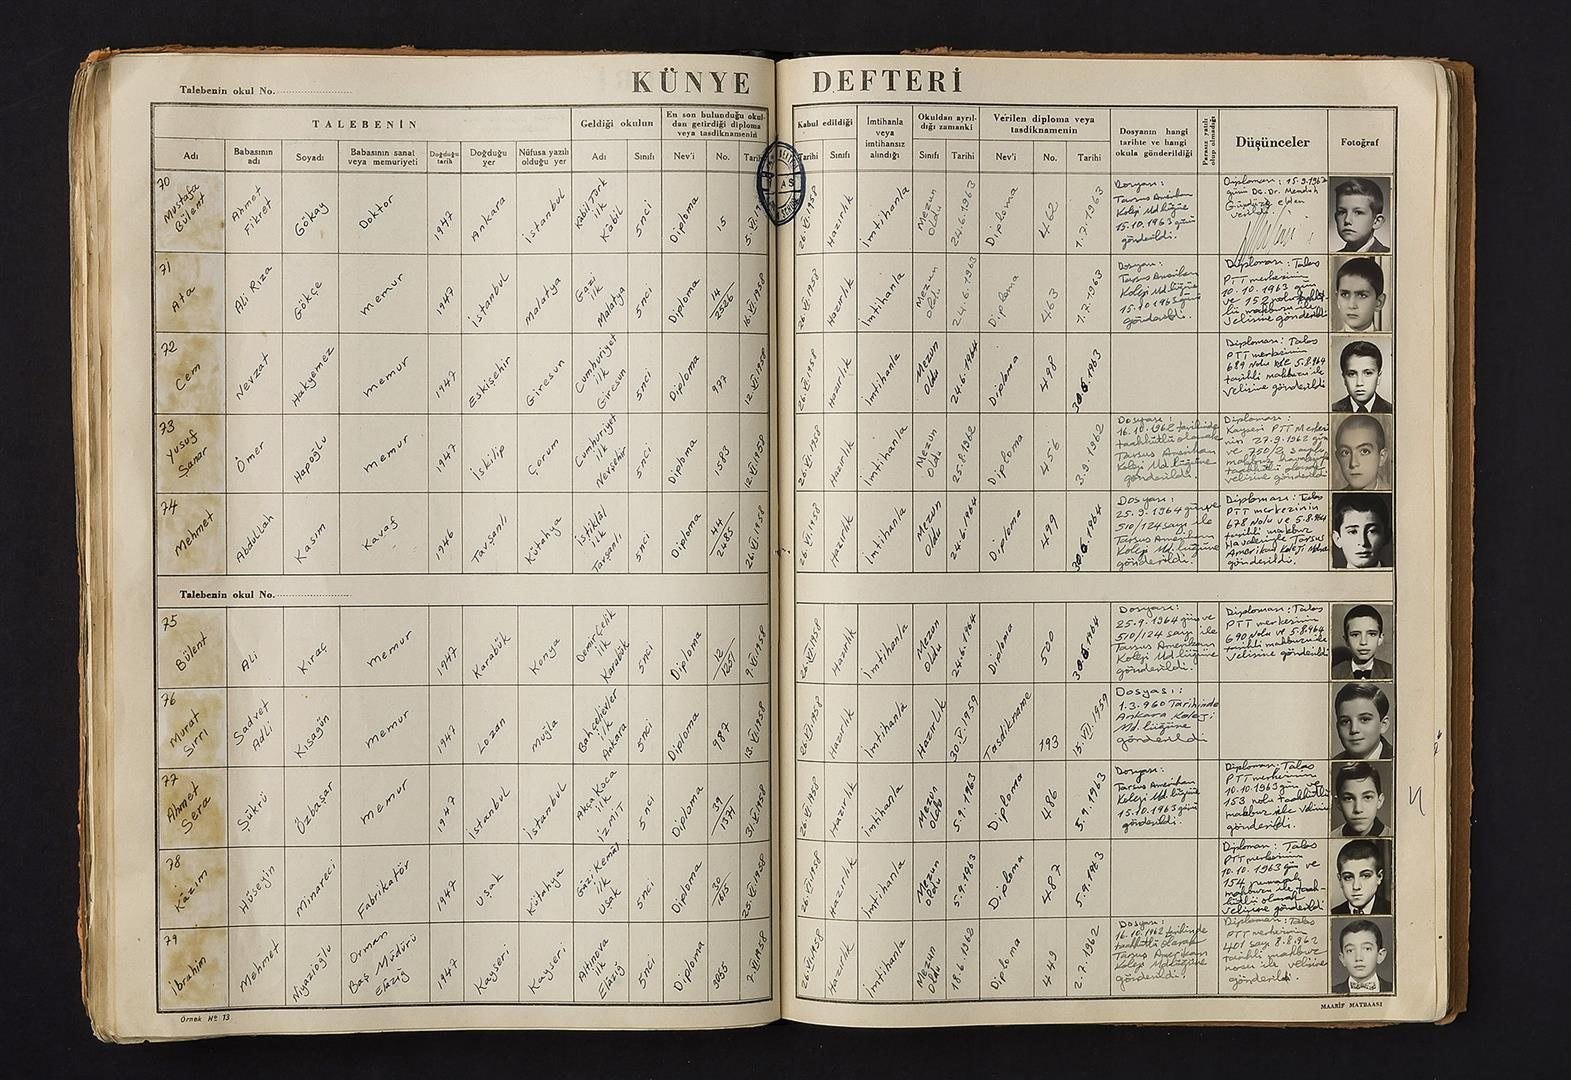 KÜNYE DEFTERİ
Talebenin okul No.
TALEBENİN
Geldiği okulun
En son bulunduğu okul-
dan getirdiği diploma
veya tasdiknamenin
Kabul edildiği
İmtihanla
veya
imtihansız
alındığı
Okuldan ayrıl-
dığı zamanki
Verilen diploma veya
tasdiknamenin
Dosyanın hangi
tarihte ve hangi
okula gönderildiği
Parasız yatılı
olup olmadığı
Düşünceler
Fotoğraf
Adı
Babasının
adı
Soyadı
Babasının sanat
veya memuriyeti
Doğduğu
tarih
Doğduğu
yer
Nüfusa yazılı
olduğu yer
Adı
Sınıfı
Nev'i
No.
Tarihi
Tarihi
Sınıfı
Sınıfı
Tarihi
Nev'i
No.
Tarihi
70
Mustafa
Bülent
Ahmet
Fikret
Gökay
Doktor
1947
Ankara
İstanbul
Kabil Türk
ilk
Kabil
5nci
Diploma
15
26.VI.1958
Hazırlık
İmtihanla
Mezun
Oldu
24.6.1963
Diploma
462
1.7.1963
Dosyası:
Tarsus Amerikan
Koleji Md.lüğüne
15.10.1963 günü
gönderildi.
Diploması: 15.9.1962
71
Ata
Ali Rıza
Gökçe
Memur
1947
İstanbul
Malatya
Gazi
ilk
Malatya
5nci
Diploma
14
2526
16.VI.1958
26.VI.1958
Hazırlık
İmtihanla
Mezun
Oldu
24.6.1963
Diploma
463
1.7.1963
Dosyası:
Tarsus Amerikan
Koleji Md.lüğüne
15.10.1963 günü
gönderildi.
Diploması: Talas
PTT merkezinin
10.10.1963 gün
ve 152 nolu
velisine gönderildi
72
Cem
Nevzat
Hakyemez
Memur
1947
Eskişehir
Giresun
Cumhuriyet
ilk
Giresun
5nci
Diploma
997
12.VI.1958
26.VI.1958
Hazırlık
İmtihanla
Mezun
Oldu
24.6.1964
Diploma
498
30.6.1963
Diploması: Talas
PTT merkezinin
689 nolu ve 5.8.964
tarihli makbuzu ile
velisine gönderildi
73
Yusuf
Şanar
Ömer
Hapoğlu
Memur
1947
İskilip
Çorum
Cumhuriyet
ilk
Nevşehir
5nci
Diploma
1583
12.VI.1958
26.VI.1958
Hazırlık
İmtihanla
Mezun
Oldu
25.8.1962
Diploma
456
3.9.1962
Dosyası:
16.10.1962 tarihinde
taahhütlü olarak
Tarsus Amerikan
Koleji Md.lüğüne
gönderildi.
Diploması:
Kayseri PTT Merkezi
nin 27.9.1962 gün
ve 750/2 sayılı
taahhütlü olarak
velisine gönderildi
74
Mehmet
Abdullah
Kasım
Kavaf
1946
Tavşanlı
Kütahya
İstiklâl
ilk
Tavşanlı
5nci
Diploma
44
2485
26.VI.1958
26.VI.1958
Hazırlık
İmtihanla
Mezun
Oldu
24.6.1964
Diploma
499
30.6.1964
Dosyası:
25.9.1964 gün ve
510/124 sayı ile
Tarsus Amerikan
Koleji Md.lüğüne
gönderildi.
Diploması: Talas
PTT merkezinin
678 nolu ve 5.8.964
tarihli makbuz
havalesiyle Tarsus
Amerikan Koleji
gönderildi.
Talebenin okul No.
75
Bülent
Ali
Kıraç
Memur
1947
Karabük
Konya
Demir Çelik
ilk
Karabük
5nci
Diploma
12
1257
9.VI.1958
26.VI.1958
Hazırlık
İmtihanla
Mezun
Oldu
24.6.1964
Diploma
500
30.6.1964
Dosyası:
25.9.1964 gün ve
510/124 sayı ile
Tarsus Amerikan
Koleji Md.lüğüne
gönderildi.
Diploması: Talas
PTT merkezinin
690 nolu ve 5.8.964
tarihli makbuzu ile
velisine gönderildi
76
Murat
Sırrı
Saavet
Adli
Kısagün
Memur
1947
Lozan
Muğla
Bahçelievler
ilk
Ankara
5nci
Diploma
987
13.VI.1958
26.VI.1958
Hazırlık
İmtihanla
Hazırlık
30.V.1959
Tasdikname
193
15.VI.1959
Dosyası:
1.3.960 Tarihinde
Ankara Koleji
Md.lüğüne
gönderildi
77
Ahmet
Sera
Şükrü
Özbaşar
Memur
1947
İstanbul
İstanbul
Akça Koca
ilk
İZMİT
5nci
Diploma
39
1371
31.VI.1958
26.VI.1958
Hazırlık
İmtihanla
Mezun
oldu
5.9.1963
Diploma
486
5.9.1963
Dosyası:
Tarsus Amerikan
Koleji Md.lüğüne
15.10.1963 günü
gönderildi.
Diploması: Talas
PTT merkezinin
10.10.1963 gün
153 nolu taahhütlü
makbuz ile velisine
gönderildi.
78
Kâzım
Hüseyin
Minareci
Fabrikatör
1947
Uşak
Kütahya
Gazi Kemal
ilk
Uşak
5nci
Diploma
30
1615
25.VI.1958
26.VI.1958
Hazırlık
İmtihanla
Mezun
Oldu
5.9.1963
Diploma
487
5.9.1963
Diploması: Talas
PTT merkezinin
10.10.1963 gün ve
154 numaralı
makbuzu ile taah-
hütlü olarak
velisine gönderildi
79
İbrahim
Mehmet
Niyazioğlu
Orman
Baş Müdürü
Elâzığ
1947
Kayseri
Kayseri
Altınova
ilk
Elâzığ
5nci
Diploma
3055
7.VI.1958
26.VI.1958
Hazırlık
İmtihanla
Mezun
Oldu
18.6.1962
Diploma
449
2.7.1962
Dosyası:
16.10.1962 tarihinde
taahhütlü olarak
Tarsus Amerikan
Koleji Md.lüğüne
gönderildi.
Diploması: Talas
PTT merkezinin
401 sayı 8.8.962
tarihli makbuz
velisine
gönderildi.
Örnek No 13
MAARİF MATBAASI